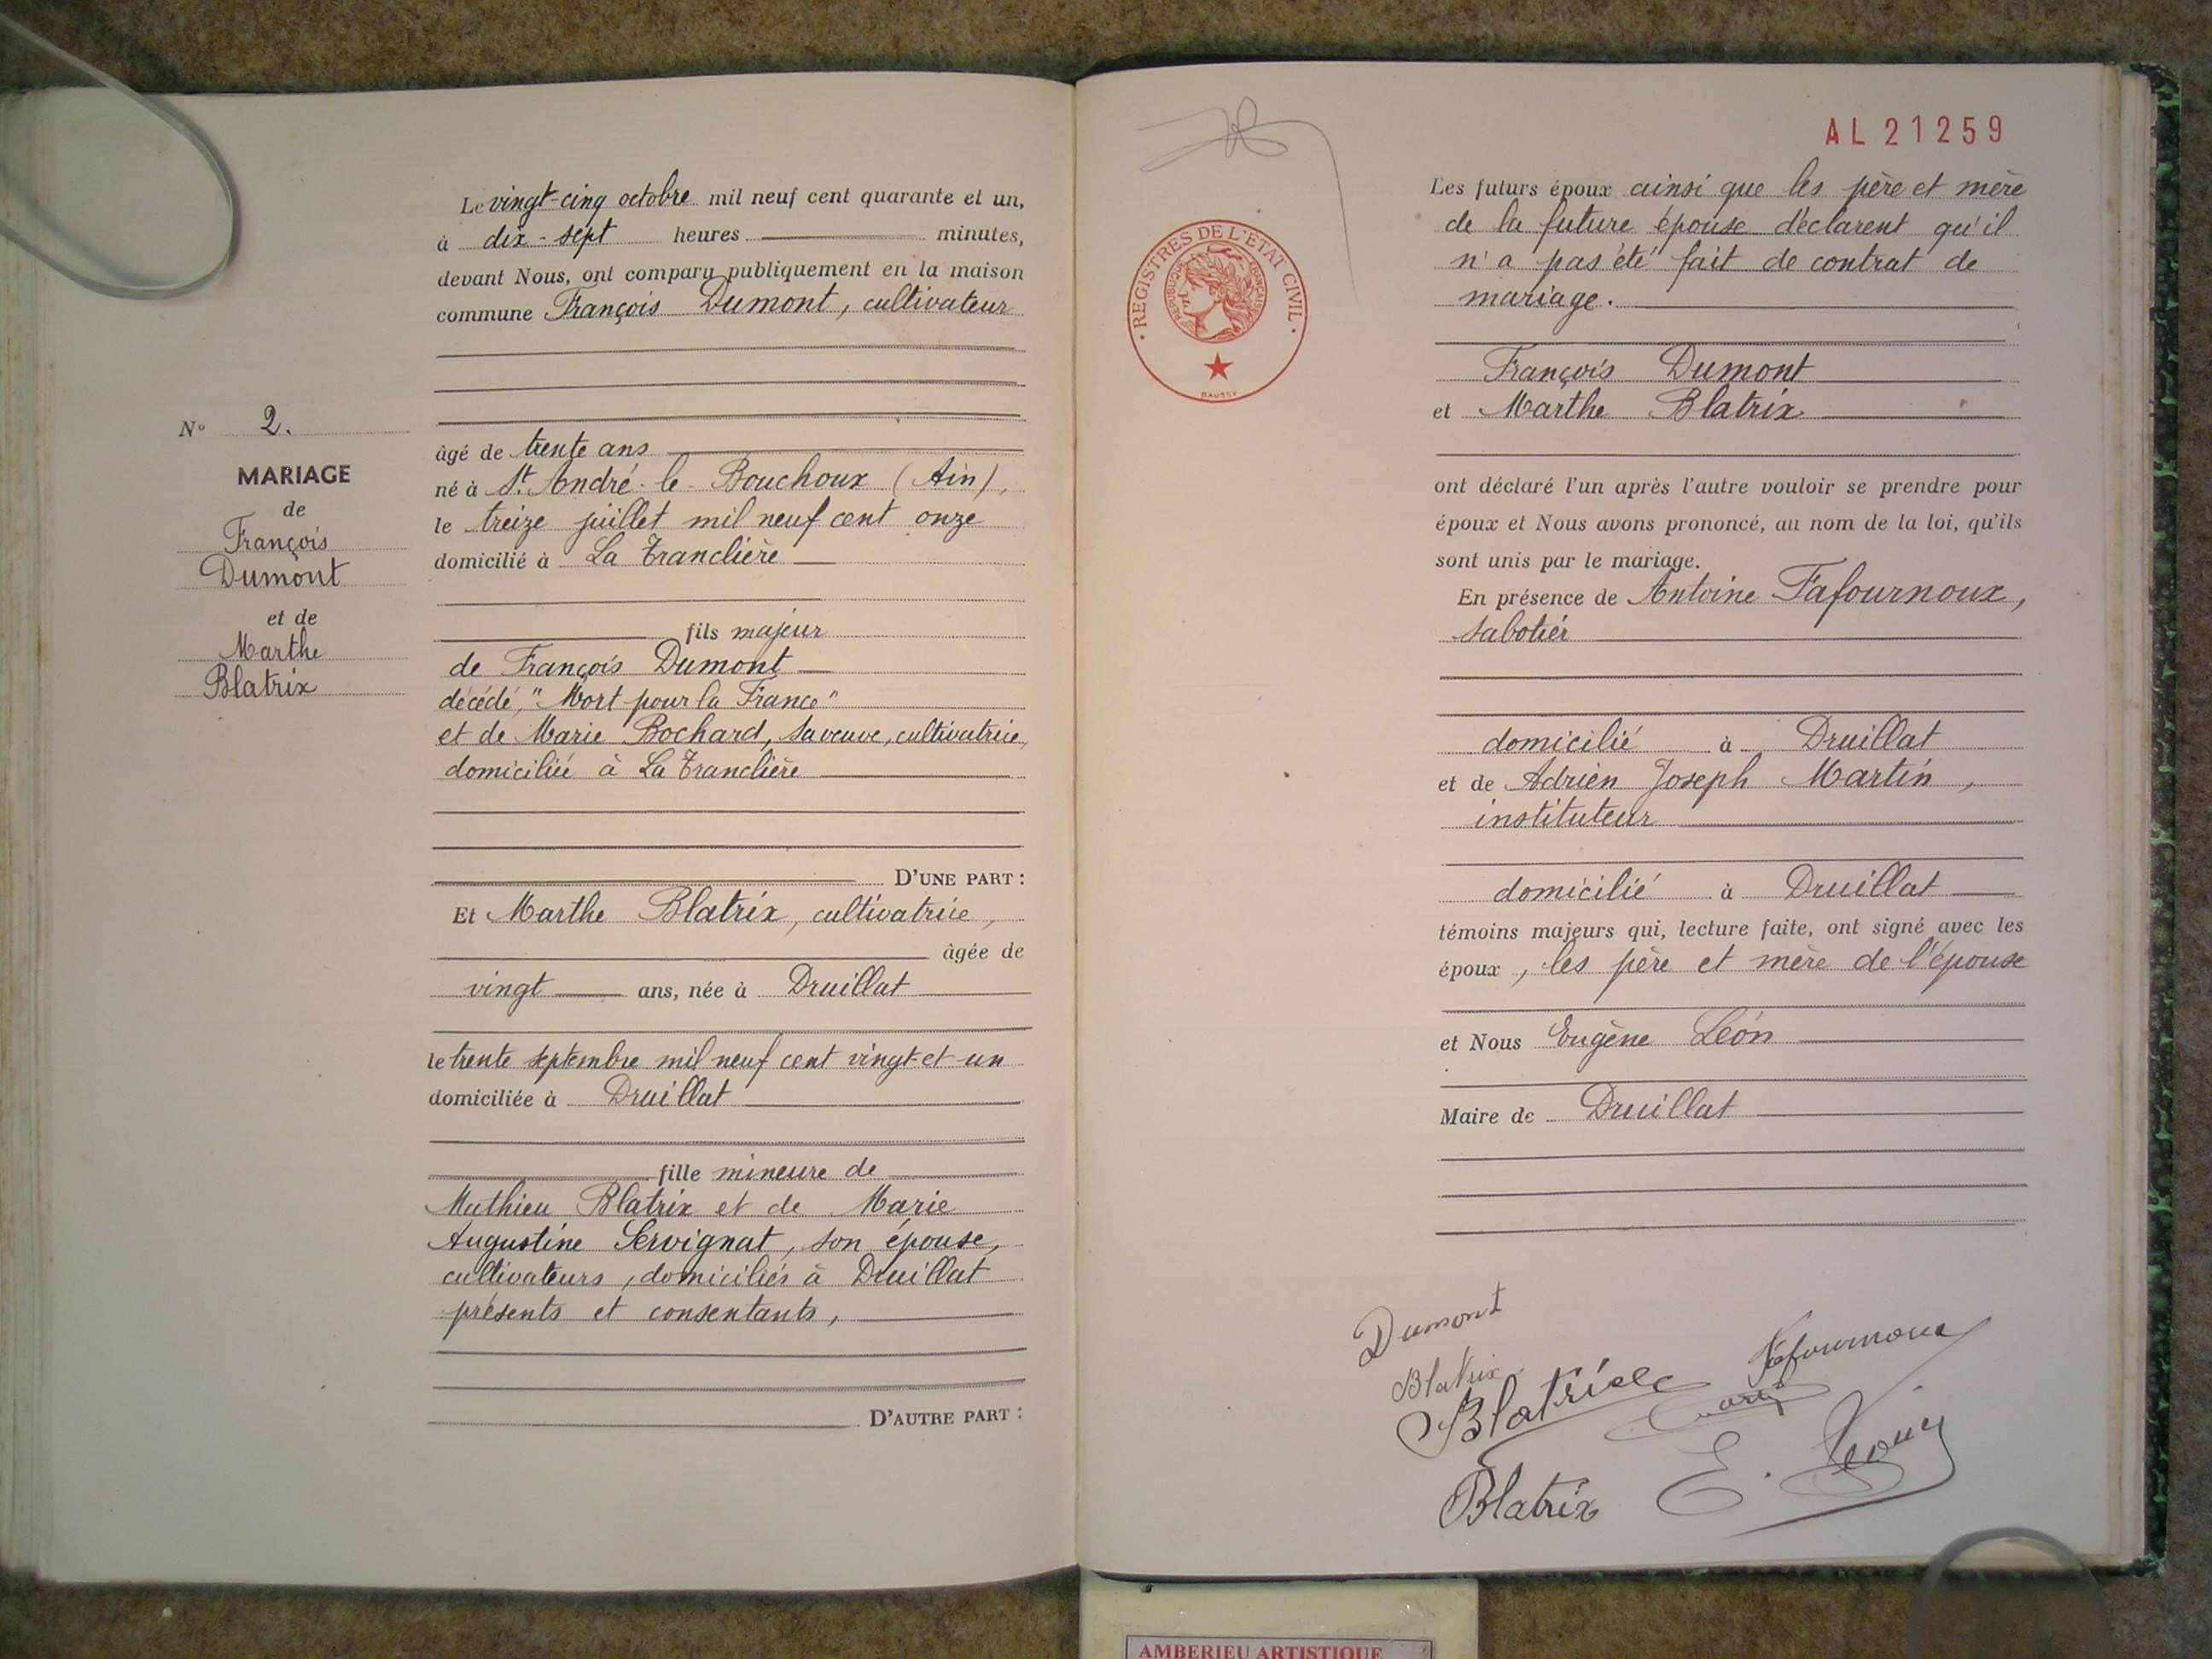 Le vingt-cinq octobre mil neuf cent quarante et un,
à dix-sept heures minutes,
devant Nous, ont comparu publiquement en la maison
commune François Dumont, cultivateur
âgé de trente ans
né à St. André-le-Bouchoux (Ain),
le treize juillet mil neuf cent onze
domicilié à La Tranclière
fils majeur
de François Dumont
décédé, "Mort pour la France"
et de Marie Bochard, sa veuve, cultivatrice,
domiciliée à La Tranclière
D'UNE PART :
Et Marthe Blatrix, cultivatrice,
âgée de
vingt ans, née à Druillat
le trente septembre mil neuf cent vingt-et-un
domiciliée à Druillat
fille mineure de
Mathieu Blatrix et de Marie
Augustine Servignat, son épouse,
cultivateurs, domiciliés à Druillat
présents et consentants,
D'AUTRE PART :
No 2.
MARIAGE
de
François
Dumont
et de
Marthe
Blatrix
AL 21259
REGISTRES DE L'ÉTAT CIVIL
Les futurs époux ainsi que les père et mère
de la future épouse déclarent qu'il
n'a pas été fait de contrat de
mariage.
François Dumont
et Marthe Blatrix
ont déclaré l'un après l'autre vouloir se prendre pour
époux et Nous avons prononcé, au nom de la loi, qu'ils
sont unis par le mariage.
En présence de Antoine Fafournoux,
sabotier
domicilié à Druillat
et de Adrien Joseph Martin,
instituteur
domicilié à Druillat
témoins majeurs qui, lecture faite, ont signé avec les
époux, les père et mère de l'épouse
et Nous Eugène Léon
Maire de Druillat
Dumont
Blatrix
Blatrix
Fafournoux
Blatrix
E. Léon
AMBERIEU ARTISTIQUE